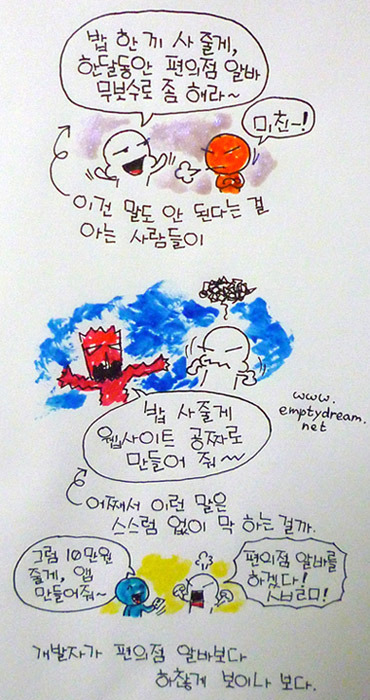 밥 한 끼 사 줄게,
한달동안 편의점 알바
무보수로 좀 해라~
미친~!
이건 말도 안 된다는 걸
아는 사람들이
밥 사줄게
웹사이트 공짜로
만들어 줘~~
www.
emptydream.
net
어째서 이런 말은
스스럼 없이 막 하는걸까.
그럼 10만원
줄게, 앱
만들어줘~
편의점 알바를
하겠다!
시브르미!
개발자가 편의점 알바보다
하찮게 보이나 보다.